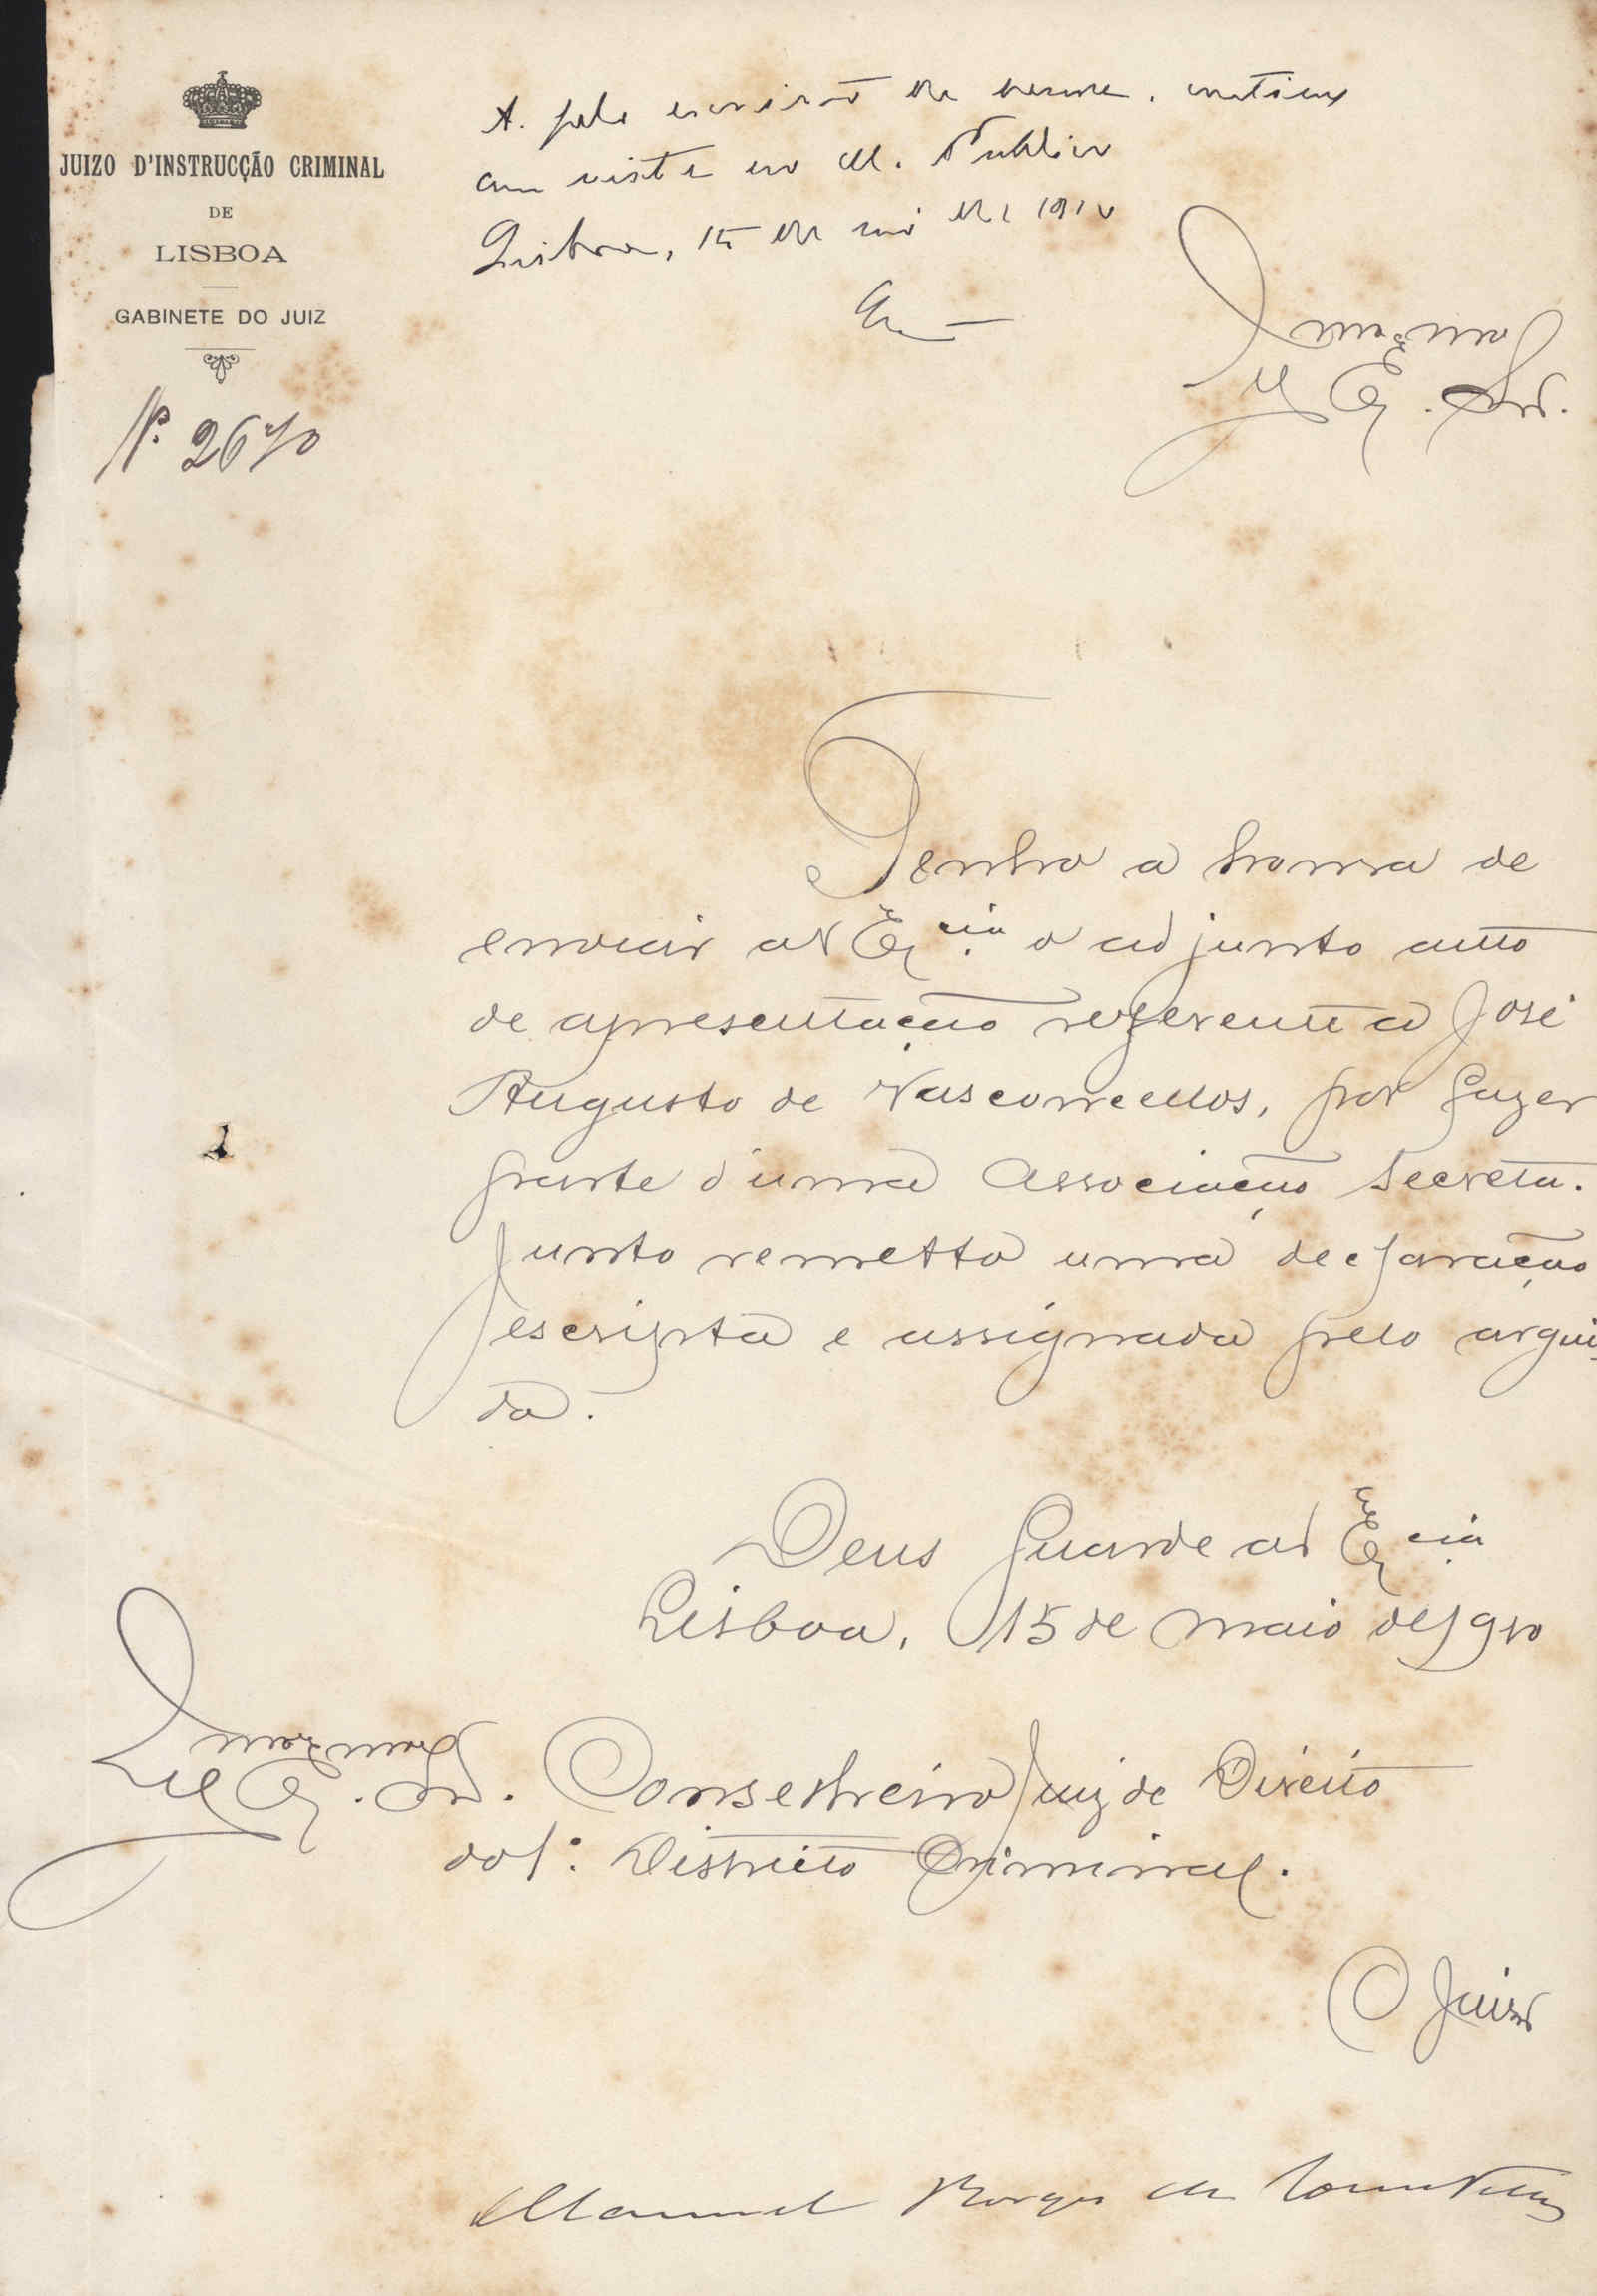 JUIZO D'INSTRUCÇÃO CRIMINAL
DE
LISBOA
GABINETE DO JUIZ
Nº 2670
A. pelo escrivão de
com vista ao M. Publico
Lisboa, 15 de maio de 1910
Ill Ex. Snr.
Tenho a honra de
enviar a V Ex cia o adjunto auto
de apresentação referente a José
Augusto de Vasconcellos, por fazer
parte d'uma Associação Secreta.
Junto remetto uma declaração
escripta e assignada pelo argui-
do.
Deus Guarde a V Ex cia
Lisboa, 15 de maio de 1910
Ill Ex. Snr. Conselheiro Juiz de Direito
do 1º. Districto Criminal.
O Juiz
Manuel Borges de